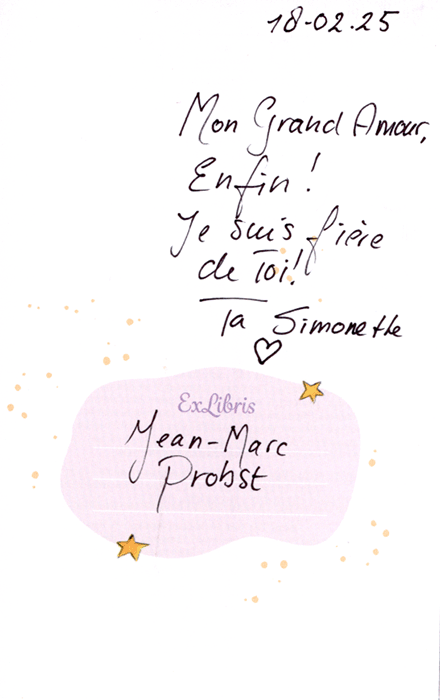 18-02.25
Mon Grand Amour,
Enfin !
Je suis fière
de Toi !
Ta Simonette
ExLibris
Jean-Marc
Probst